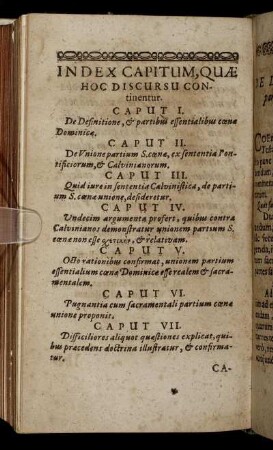 INDEX CAPITUM, QUÆ
HOC DISCURSU CON-
tinentur.
CAPUT I.
De Definitione, & partibus essentialibus cœnæ
Dominicæ.
CAPUT II.
De Vnione partium S. cœnæ, ex sententia Pon-
tificiorum, & Calvinianorum.
CAPUT III.
Quid iure in sententia Calvinistica, de parti-
um S. cœnæ unione, desideretur.
CAPUT IV.
Undecim argumenta profert, quibus contra
Calvinianos demonstratur unionem partium S.
cœnæ non esse & relativam.
CAPUT V.
Octo rationibus confirmat, unionem partium
essentialium cœnæ Dominicæ esse realem & sacra-
mentalem.
CAPUT VI.
Pugnantia cum sacramentali partium cœnæ
unione proponit.
CAPUT VII.
Difficiliores aliquot quæstiones explicat, qui-
bus præcedens doctrina illustratur, & confirma-
tur.
CA-